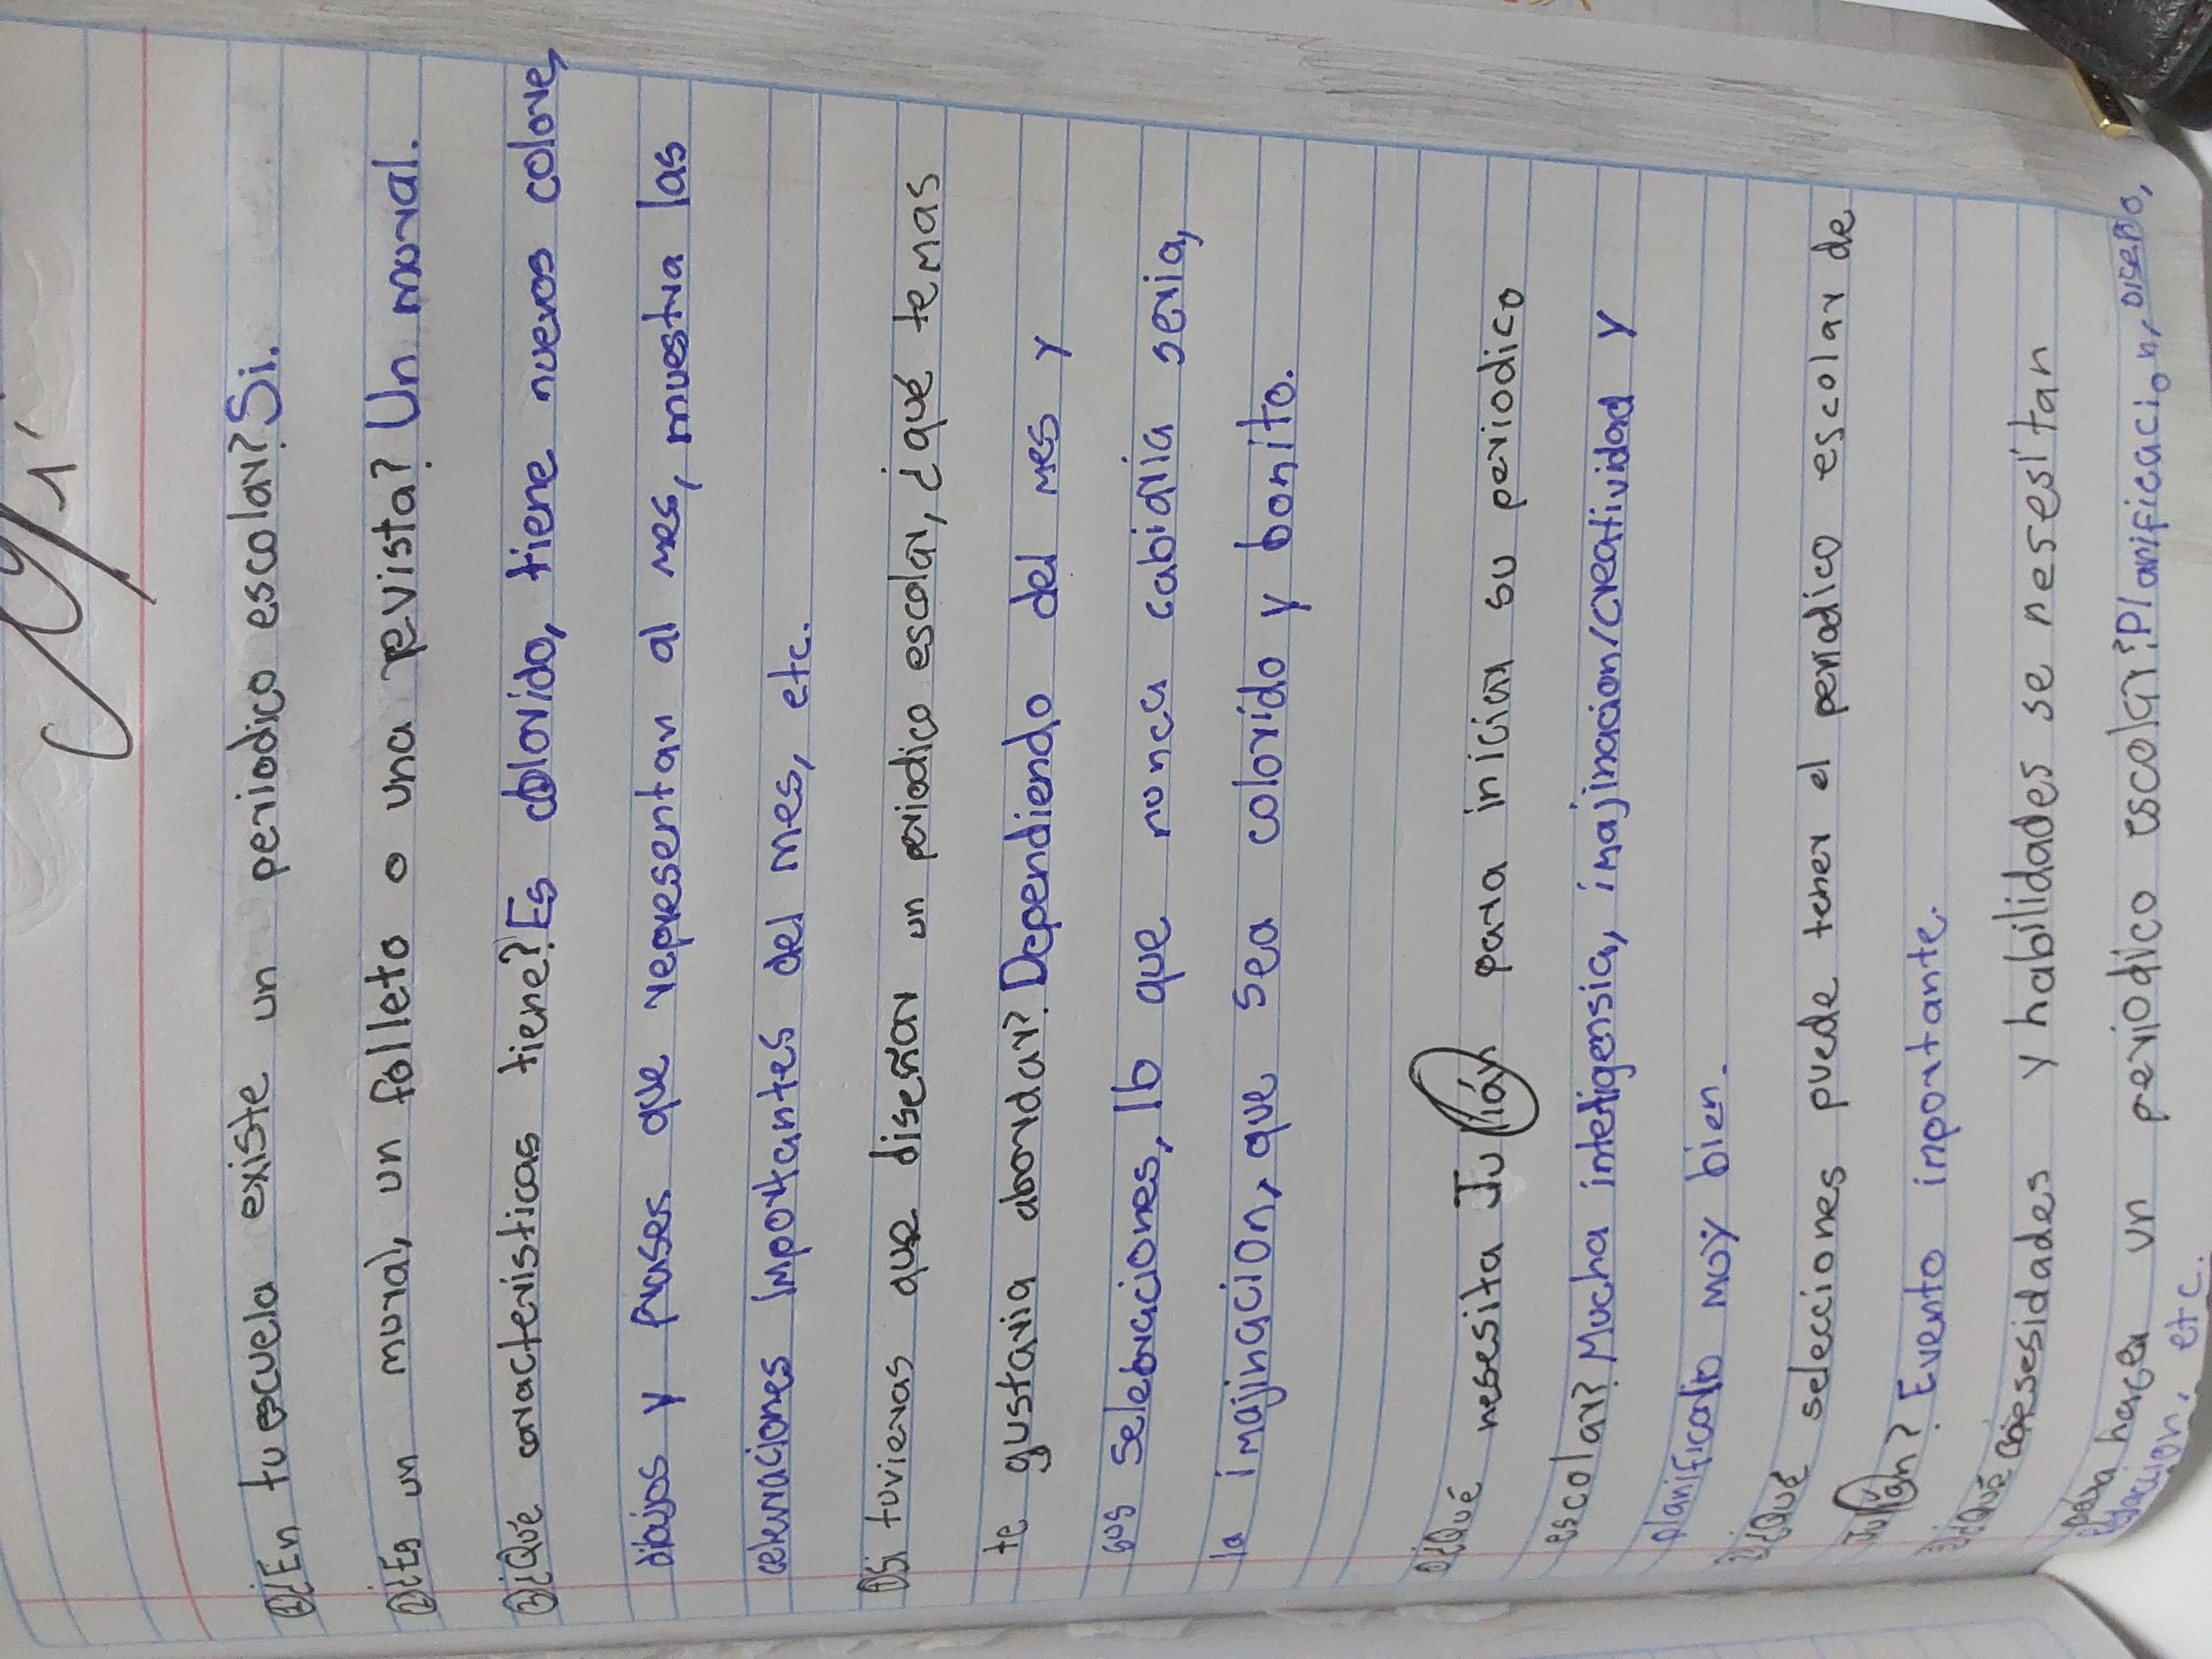 ¿En tu escuela existe un periodico escolar? Si.
¿Es un mural, un folleto o una revista? Un moral.
¿Qué caracteristicas tiene? Es colorido, tiene nuevos colore,
dibujos y frases que representan al mes, muestra las
celevraciones importantes del mes, etc.
Si tuvieras que diseñar un periodico escolar, ¿qué temas
te gustaria abordar? Dependiendo del mes y
sus selebraciones, lo que nunca cabiaria seria,
la imajinacion, que sea colorido y bonito.
¿Qué nesesita Julián para iniciar su periodico
escolar? Mucha inteligensia, imajinacion/creatividad y
planificarlo muy bien.
¿Qué selecciones puede tener el periodico escolar de
Julián? Evento importante.
¿Qué nesesidades y habilidades se nesesitan
para hacer un periodico escolar? Planificacion,
etc.